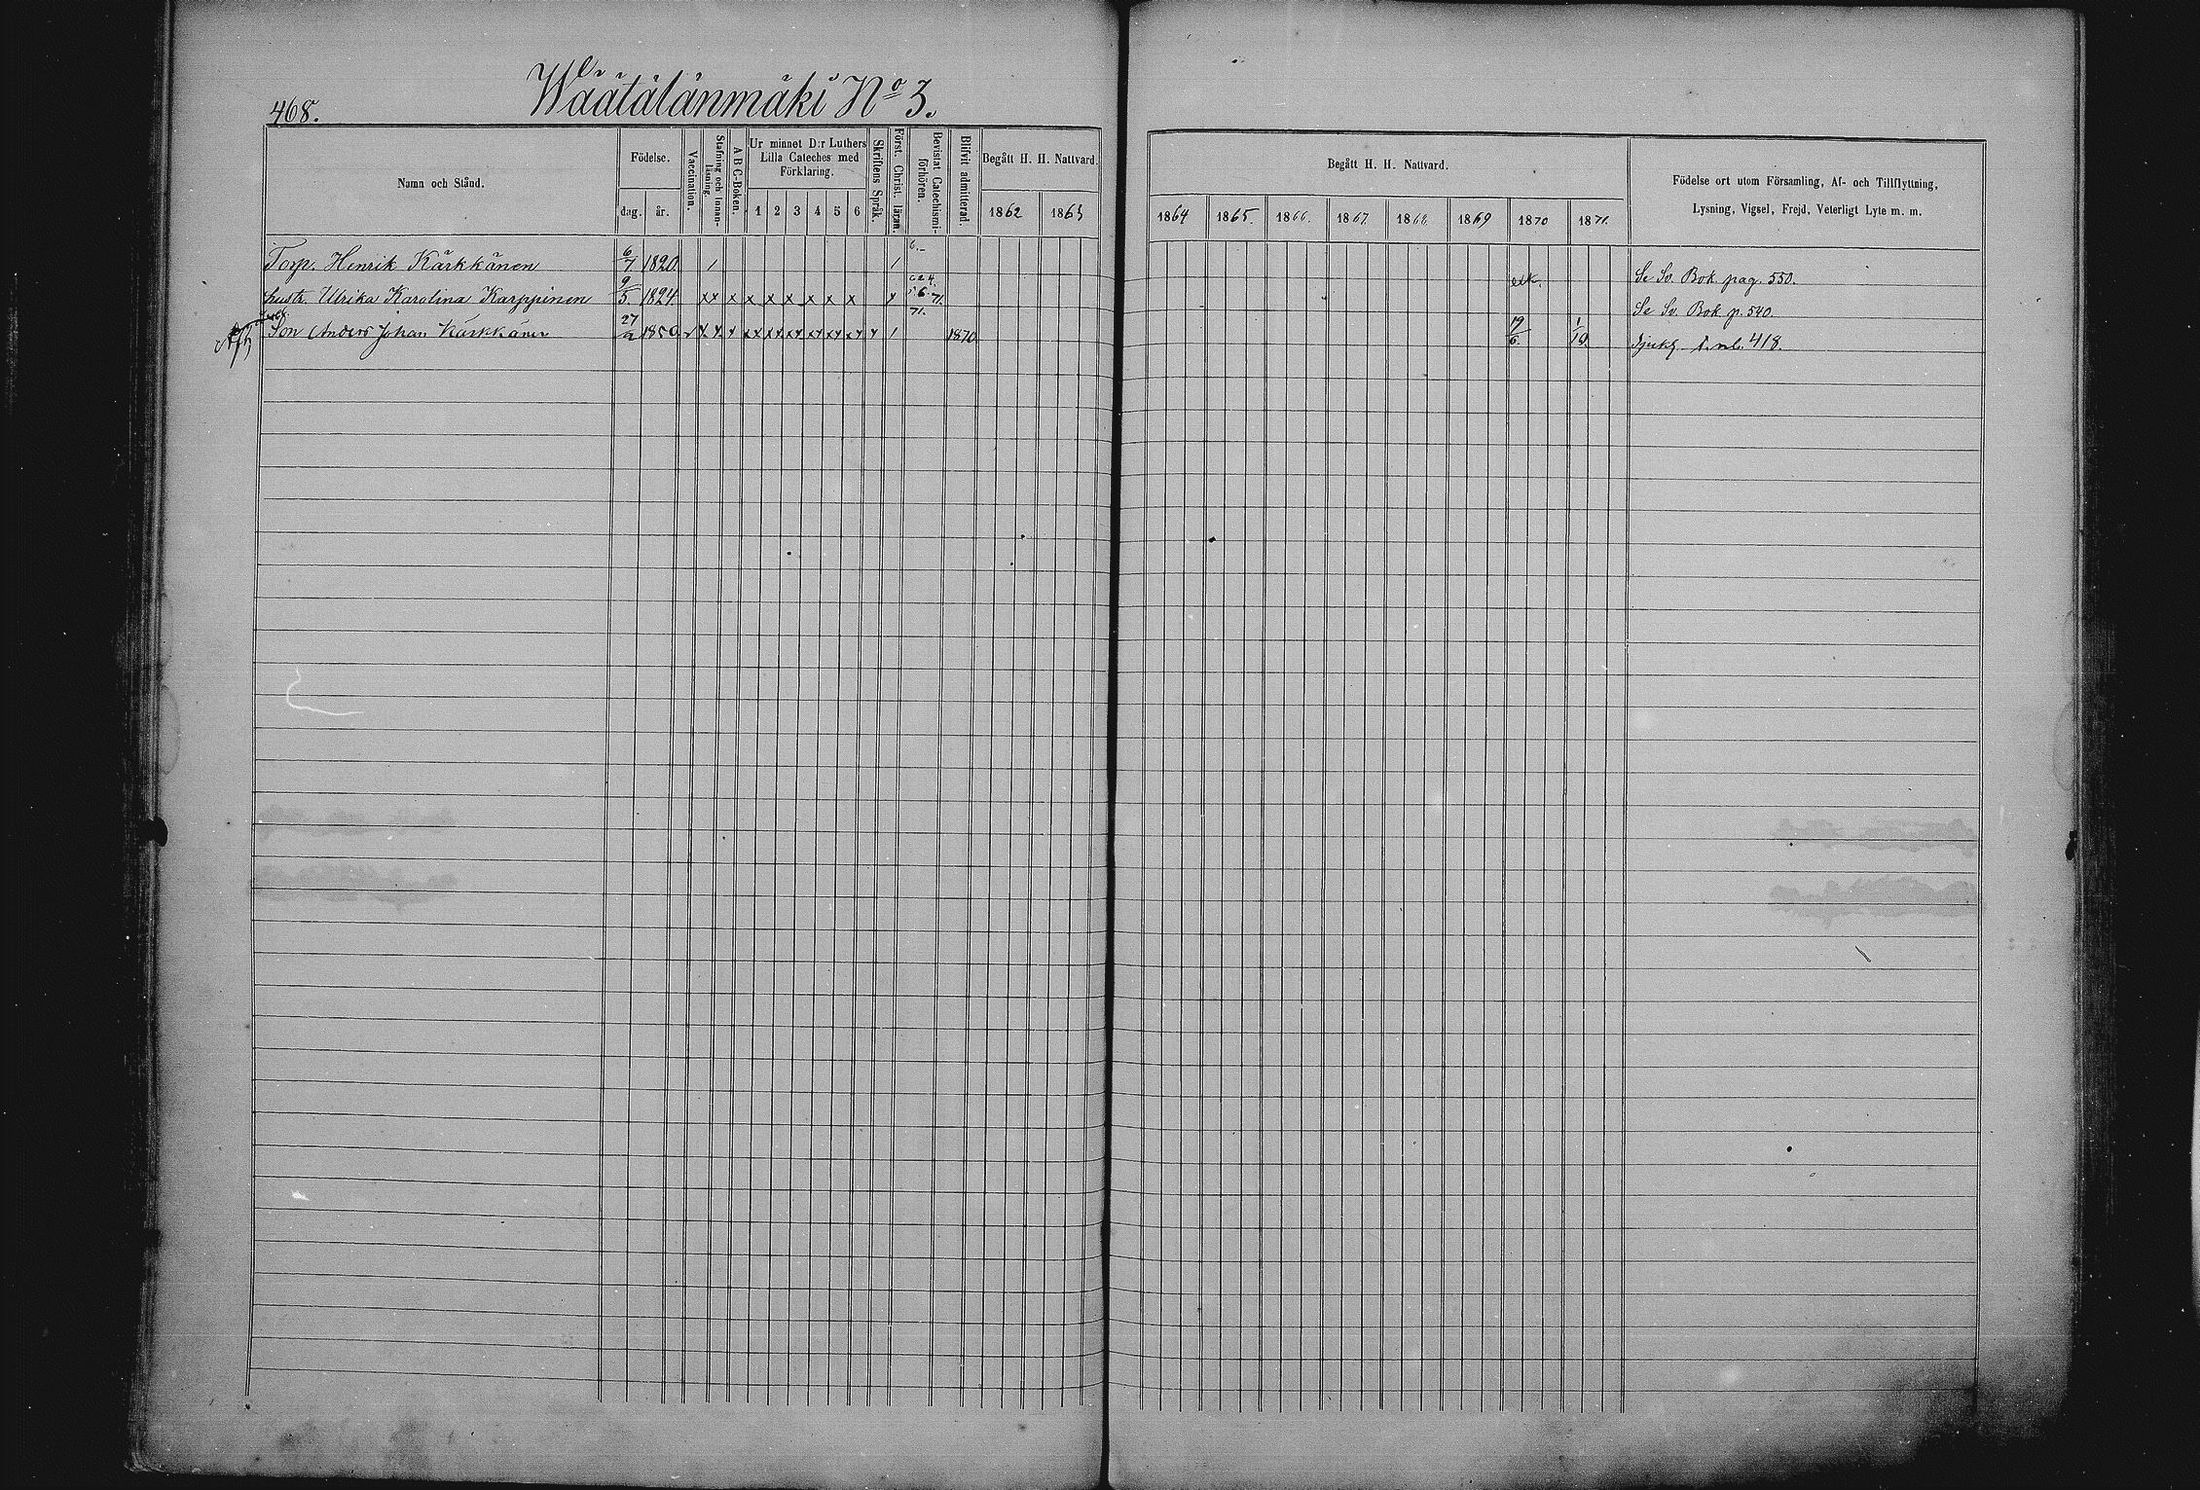 468.
Wäätälänmäki No 3.
Namn och Stånd.
Födelse.
dag. år.
Vaccination.
Stafning och Innanläsning.
A B C-Boken.
Ur minnet D:r Luthers Lilla Cateches med Förklaring.
1 2 3 4 5 6
Skriftens Språk.
Först. Christ. läran.
Bevistat Catechismiförhören.
Blifvit admitterad.
Begått H. H. Nattvard.
1862 1863
Begått H. H. Nattvard.
1864 1865. 1866. 1867. 1868. 1869 1870 1871.
Födelse ort utom Församling, Af- och Tillflyttning,
Lysning, Vigsel, Frejd, Veterligt Lyte m. m.
Torp. Henrik Kärkkänen 6/7 1820. Se Sv. Bok. pag. 550.
hustr. Ulrika Karolina Karppinen 9/5. 1824 x x x x x x x x x x 71. Se Sv. Bok p. 540
Son Anders Johan Kärkkänen 27/2 1850. 71. 1870. 19/6. 1/10. Sjukl. 418.